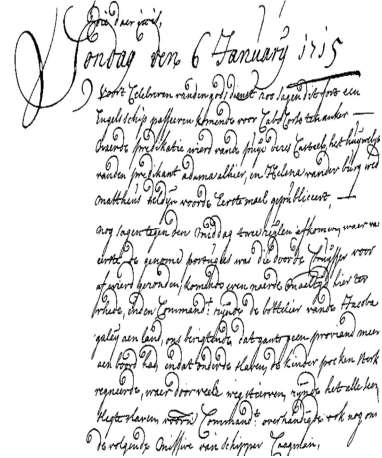 die daer in is,
Sondag den 6 January 1715
Voort Celebreren vanden godsdienst nos sagen dit fort een
Engels schip passeren komende voor Cabo Cors ten anker
Onaerde predikatie wierd vande puije deses Casteels het huijwelijk
vanden predikant adama alhier, en Helena vander burg wed
Mattheus heldijn voorde Eerste mael gepubliceert,
nog sagen tegen den Middag twee zeijlen afkomen waer van
eerste de genome portugees was die door de Cruijsser voor
af wierd gesonden, komende even naerde Maeltijd hier ter
rhede, en den Command.t zijnde de bottelier vande Jacoba
galeij aen land, ons berigtende dat gants geen proviand meer
aen boord had, en dat onder de slaven de kinder pocken sterk
regneerde, waer door veele weg stierven, zijnde het alle ken
slegte slaven Command.t overhandigde ook nog on
de volgende Missive van schipper Caagman,